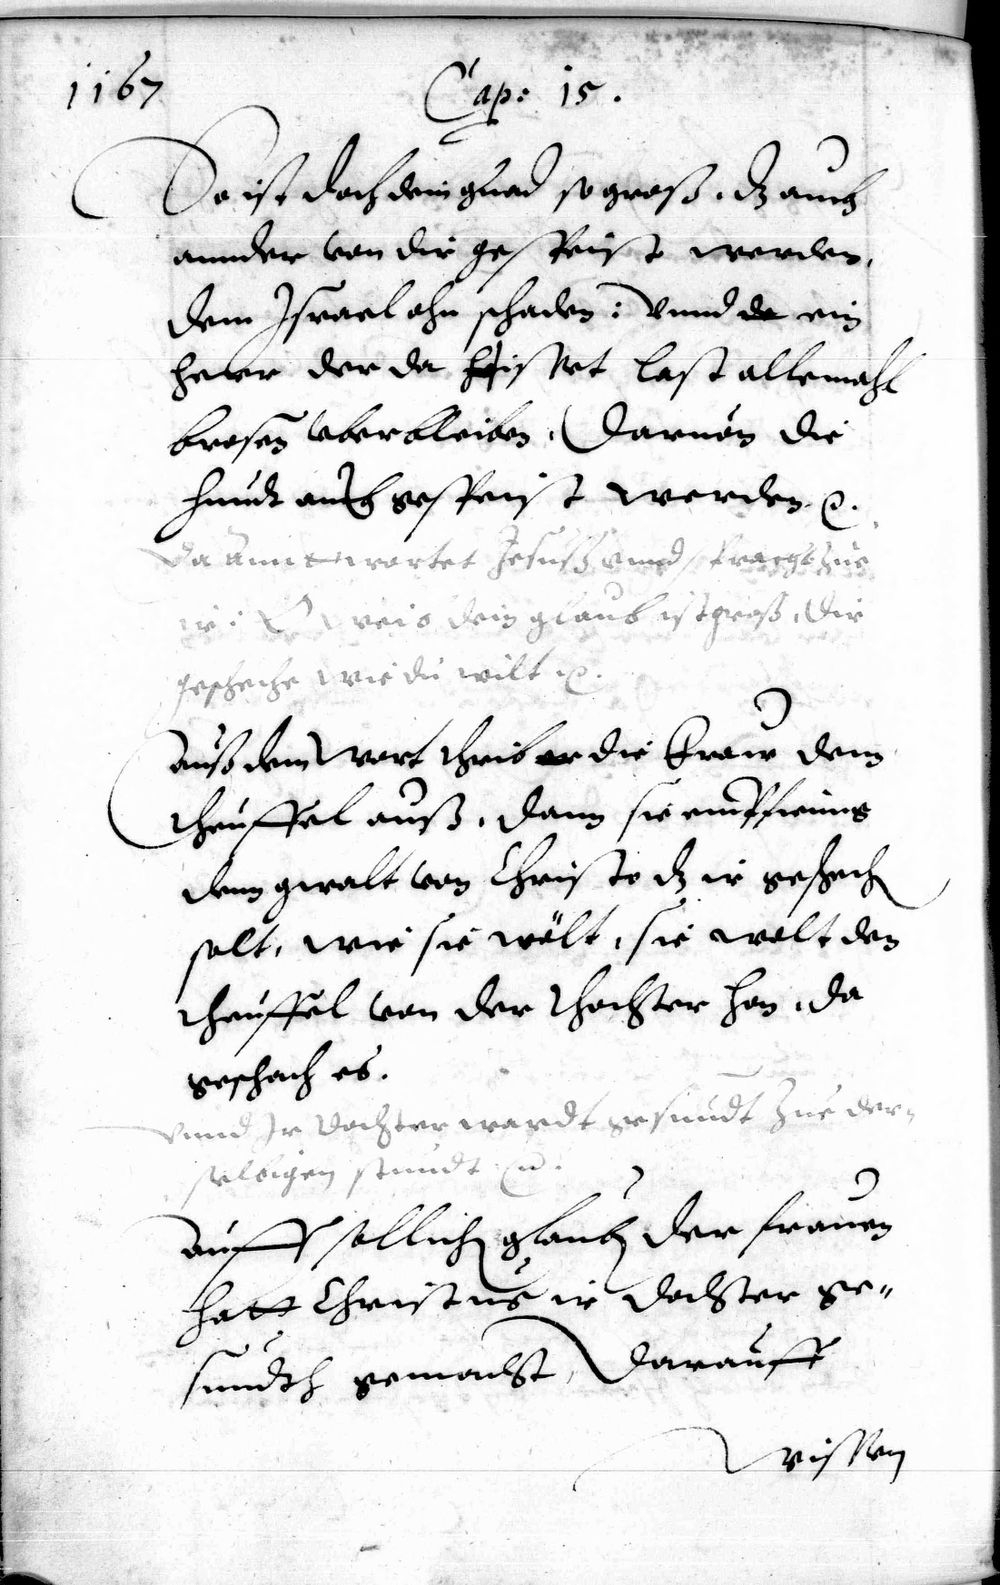 1167 Cap: 15.
So ist doch dein gnad so gross, dz auch
annder von dir gespeist werden,
dem Israel ohn schaden: Vnnd da ein
herr der da hisset last allemahl
brosen vberbleiben, Darvon die
hundt auch gespeist werden ꝛc.
Da anntwortet Jesuss vnnd spracht zue
ir: O Weib dein glaub ist gross, dir
gescheche wie du wilt ꝛc.
Auss dem Wort threib er die fraw dem
theuffel auss, dann sie empfieng
denn gwalt von Christo dz ir geschech
solt, wie sie wölt, sie wolt den
theuffel von der thochter han, da
geschach es.
Vnnd Ir Dochter wardt gesundt Zue der-
selbigen stundt ꝛc.
Auff sollich glaub der frauen
hatt Christus ir dochter ge-
sundth gemacht, Darauff
wissen